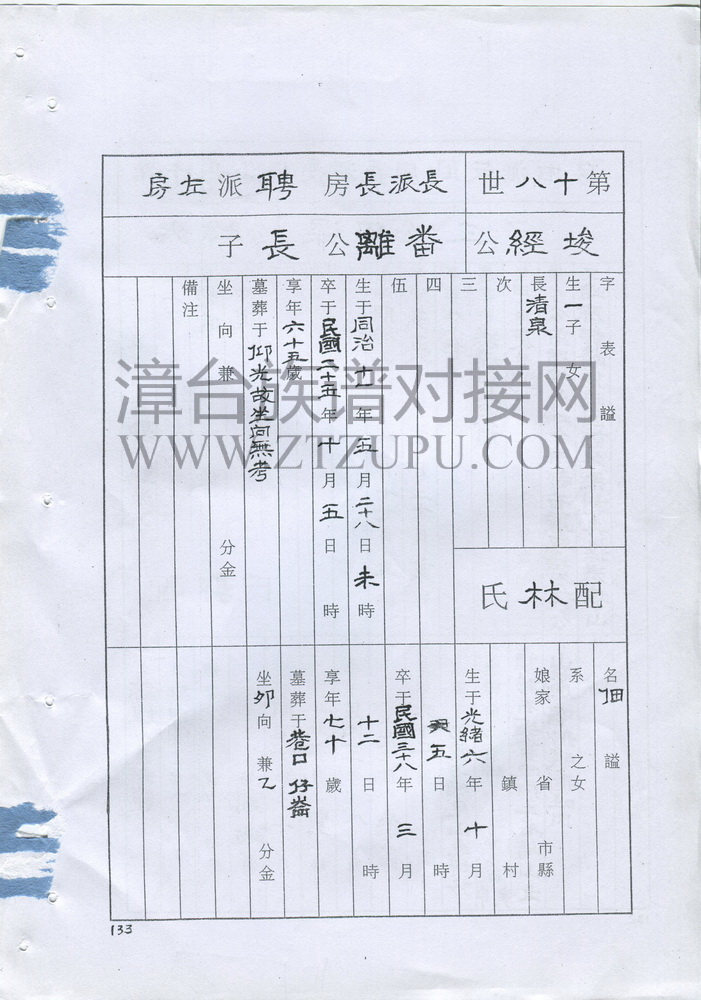 第十八世
長派長房 聘派左房
埈經公
番離公長子
字 表 謚
生一子 女
長清泉
次
三
四
伍
生于同治十一年五月二十八日未時
卒于民國二十五年十月五日 時
享年六十五歲
墓葬于仰光故坐向無考
坐 向 兼 分金
備注
配林氏
名 謚
系 之女
娘家 省 市縣
鎮 村
生于光緒六年十月
五日 時
卒于民國三十八年三月
十二日 時
享年七十歲
墓葬于巷口仔崙
坐卯向 兼乙 分金
133
漳台族谱对接网
WWW.ZTZUPU.COM